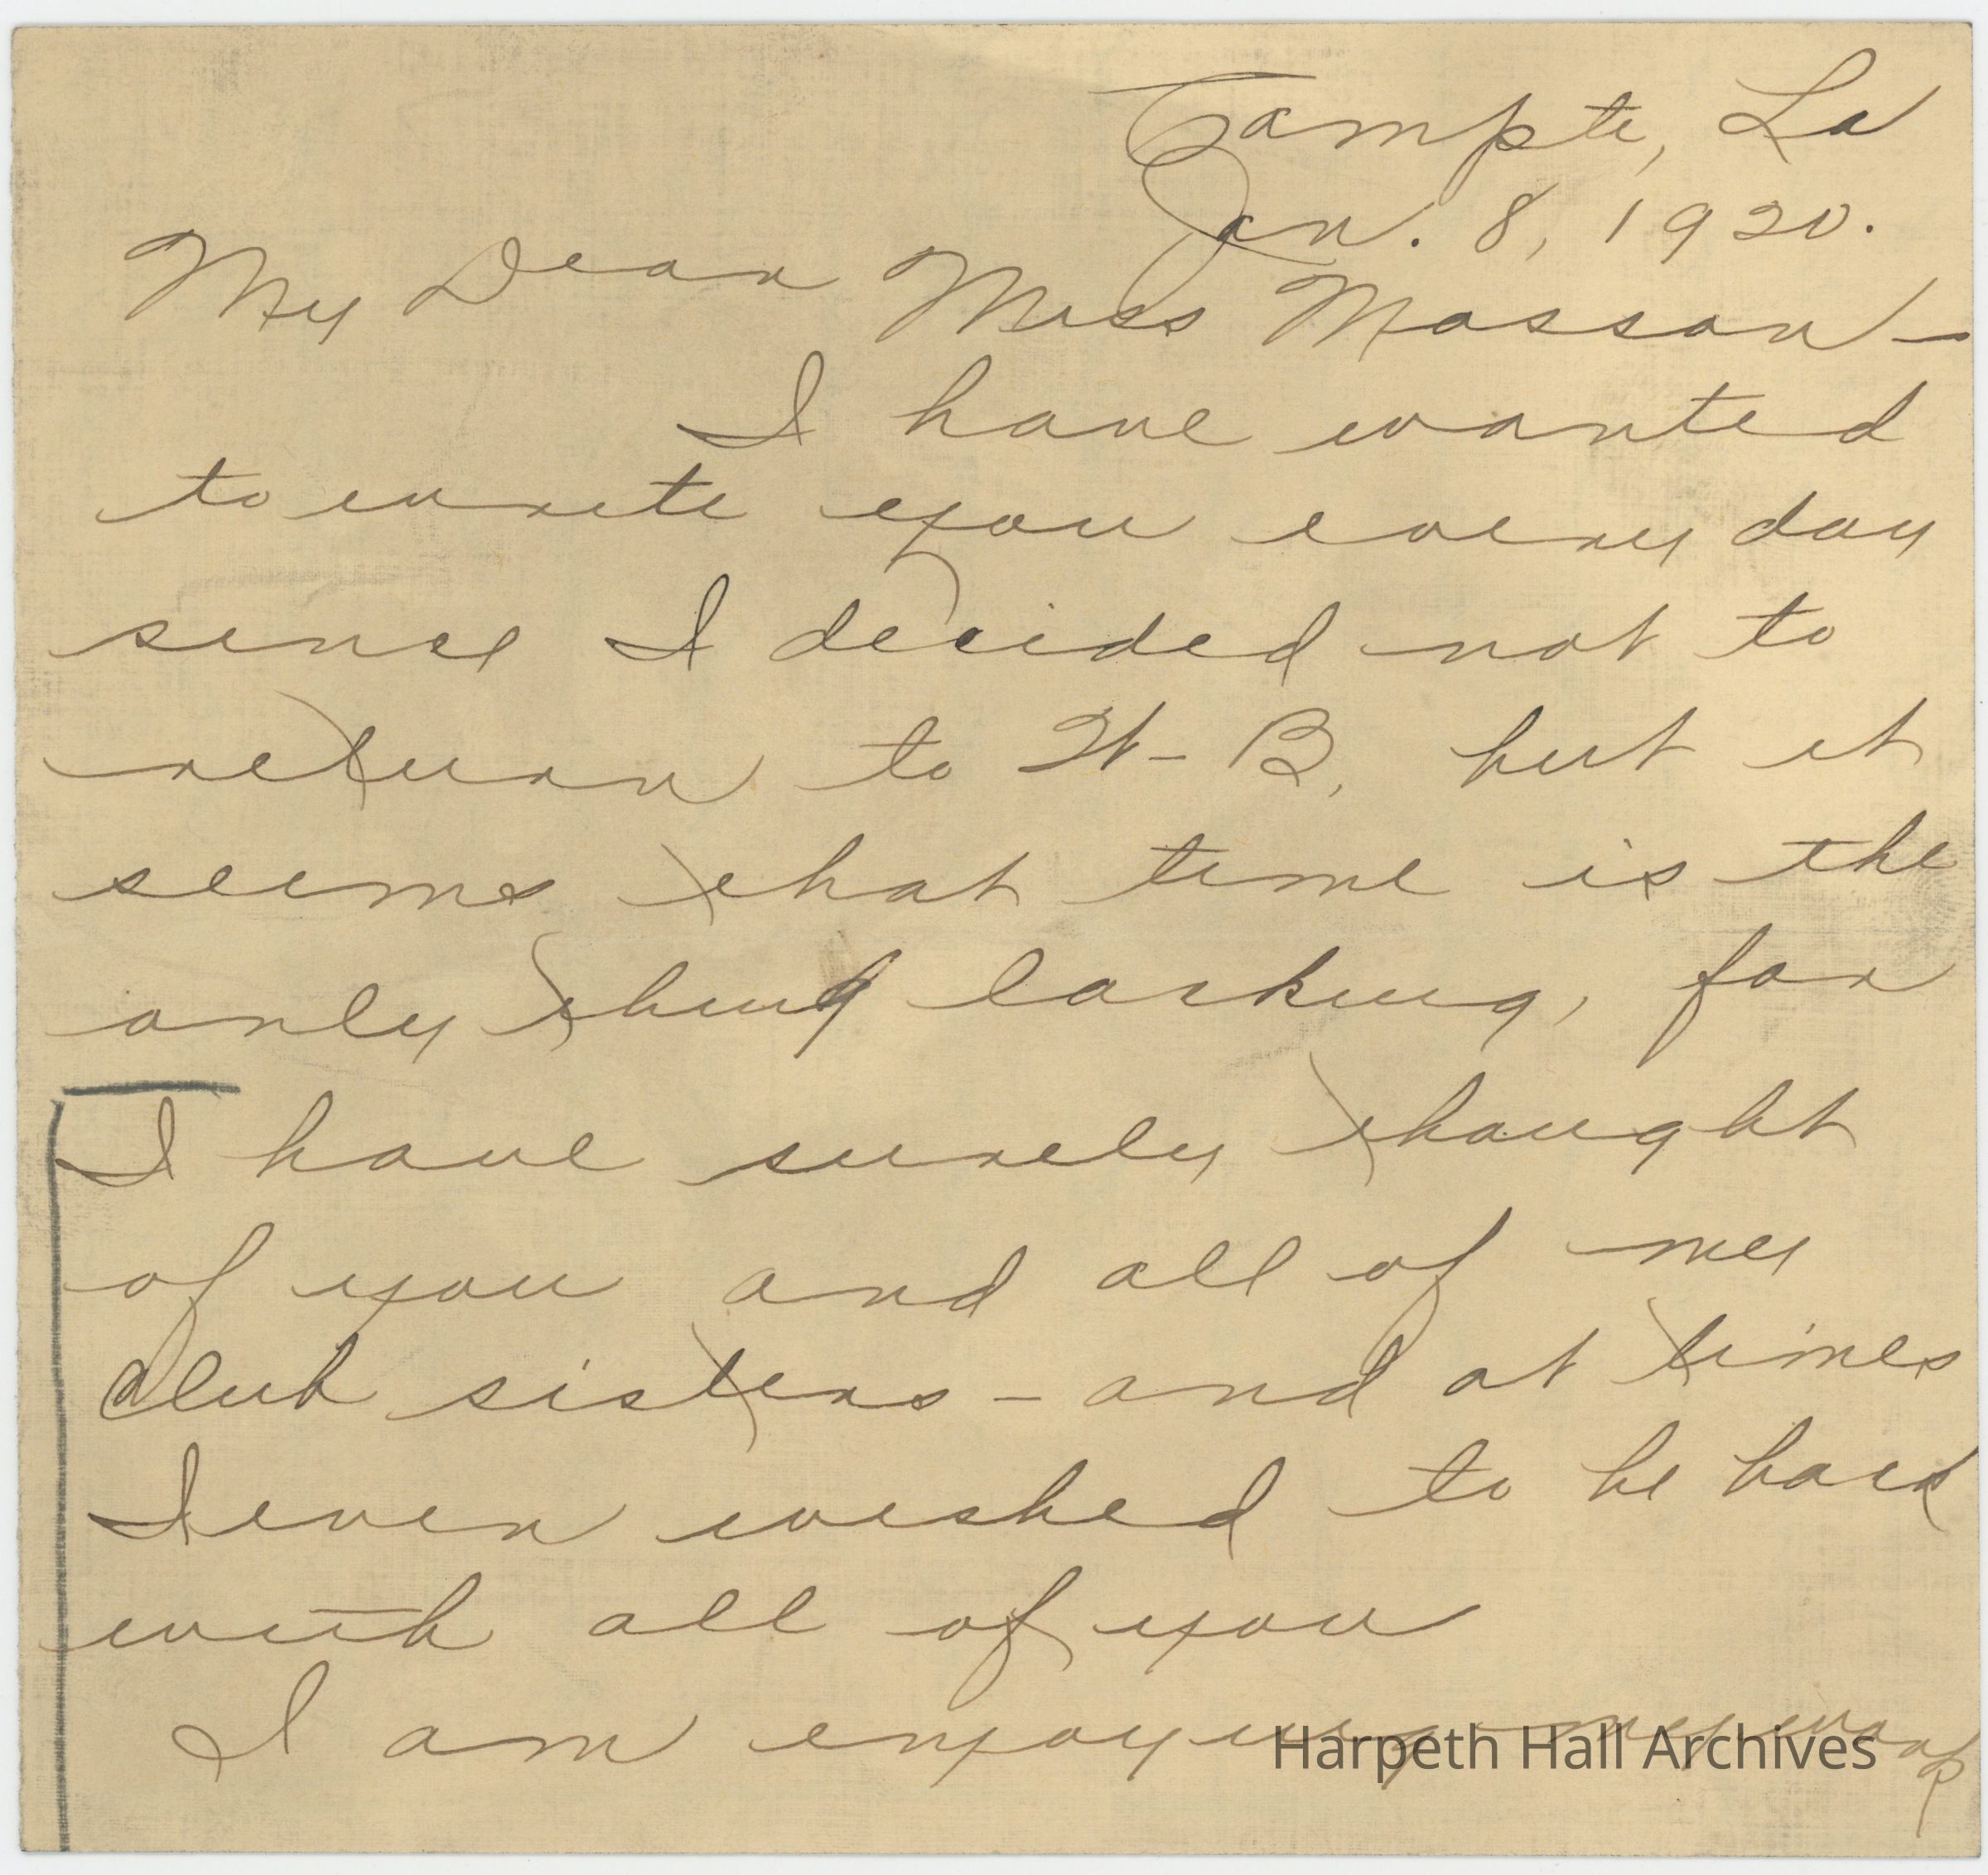 Campte, La
Jan. 8, 1920.
My Dear Miss Masson –
I have wanted
to write you every day
since I decided not to
return to W-B, but it
seems that time is the
only thing lacking, for
I have surely thought
of you and all of my
club sisters – and at times
I even wished to be back
with all of you
I am enjoying my work
Harpeth Hall Archives